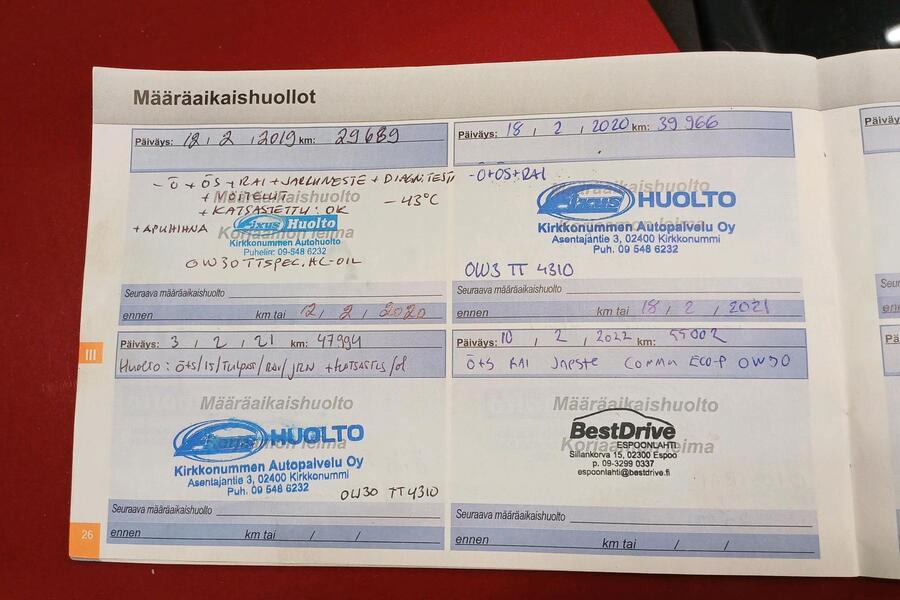 Määräaikaishuollot
Päiväys: 18, 2, 2019 km: 29 689
- Ö + ÖS + RAI + JARRUNESTE + DIAGN.TESTI
Määräaikaishuolto
- 43°C
+ KATSASTETTU: OK
+ APUHIHNA
Korjaamon leima
Axus Huolto
Kirkkonummen Autohuolto
Puhelin: 09-548 6232
OW30 TTSPEC, HC-OIL
Seuraava määräaikaishuolto
ennen km tai 12, 2, 2020
Päiväys: 18, 2, 2020 km: 39 966
-Ö+ÖS+RAI
Määräaikaishuolto
Axus HUOLTO
Korjaamon leima
Kirkkonummen Autopalvelu Oy
Asentajantie 3, 02400 Kirkkonummi
Puh. 09 548 6232
OW3 TT 4310
Seuraava määräaikaishuolto
ennen km tai 18, 2, 2021
III
Päiväys: 3, 2, 21 km: 47994
Huolto: Ö+S/IS/ /RAI/JRN +KATSASTUS/ol
Määräaikaishuolto
HUOLTO
Korjaamon leima
Kirkkonummen Autopalvelu Oy
Asentajantie 3, 02400 Kirkkonummi
Puh. 09 548 6232
OW30 TT4310
Seuraava määräaikaishuolto
ennen km tai / /
Päiväys: 10, 2, 2022 km: 55002
Ö+S RAI COMMA ECO-P OW30
Määräaikaishuolto
BestDrive
Korjaamon leima
ESPOONLAHTI
Sillankorva 15, 02300 Espoo
p. 09-3299 0337
espoonlahti@bestdrive.fi
Seuraava määräaikaishuolto
ennen km tai / /
26
Päiväy
Seu
enn
Pä